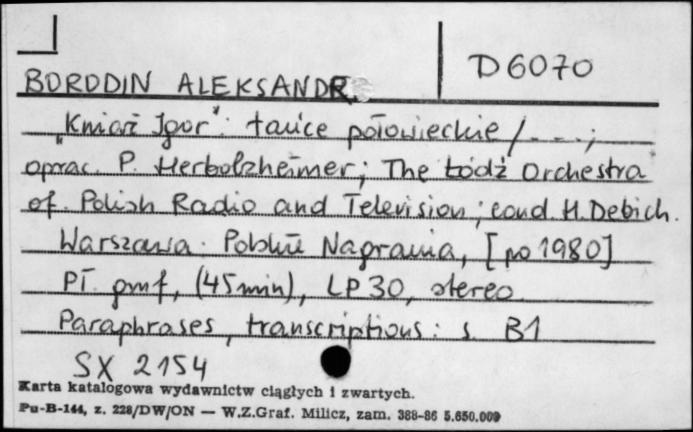 D6070
BORODIN ALEKSANDR
"Kniaź Igor": tańce połowieckie / - - - ;
oprac. P. Herbolzheimer; The Łódź Orchestra
of Polish Radio and Television; cond. H. Debich.
Warszawa. Polskie Nagrania, [po 1980]
Pł. gmf, (45 min), LP 30, stereo
Paraphrases, transcriptions: s. B1
SX 2154
Karta katalogowa wydawnictw ciągłych i zwartych.
Pu-B-144, z. 228/DW/ON — W.Z.Graf. Milicz, zam. 388-86 5.650.000